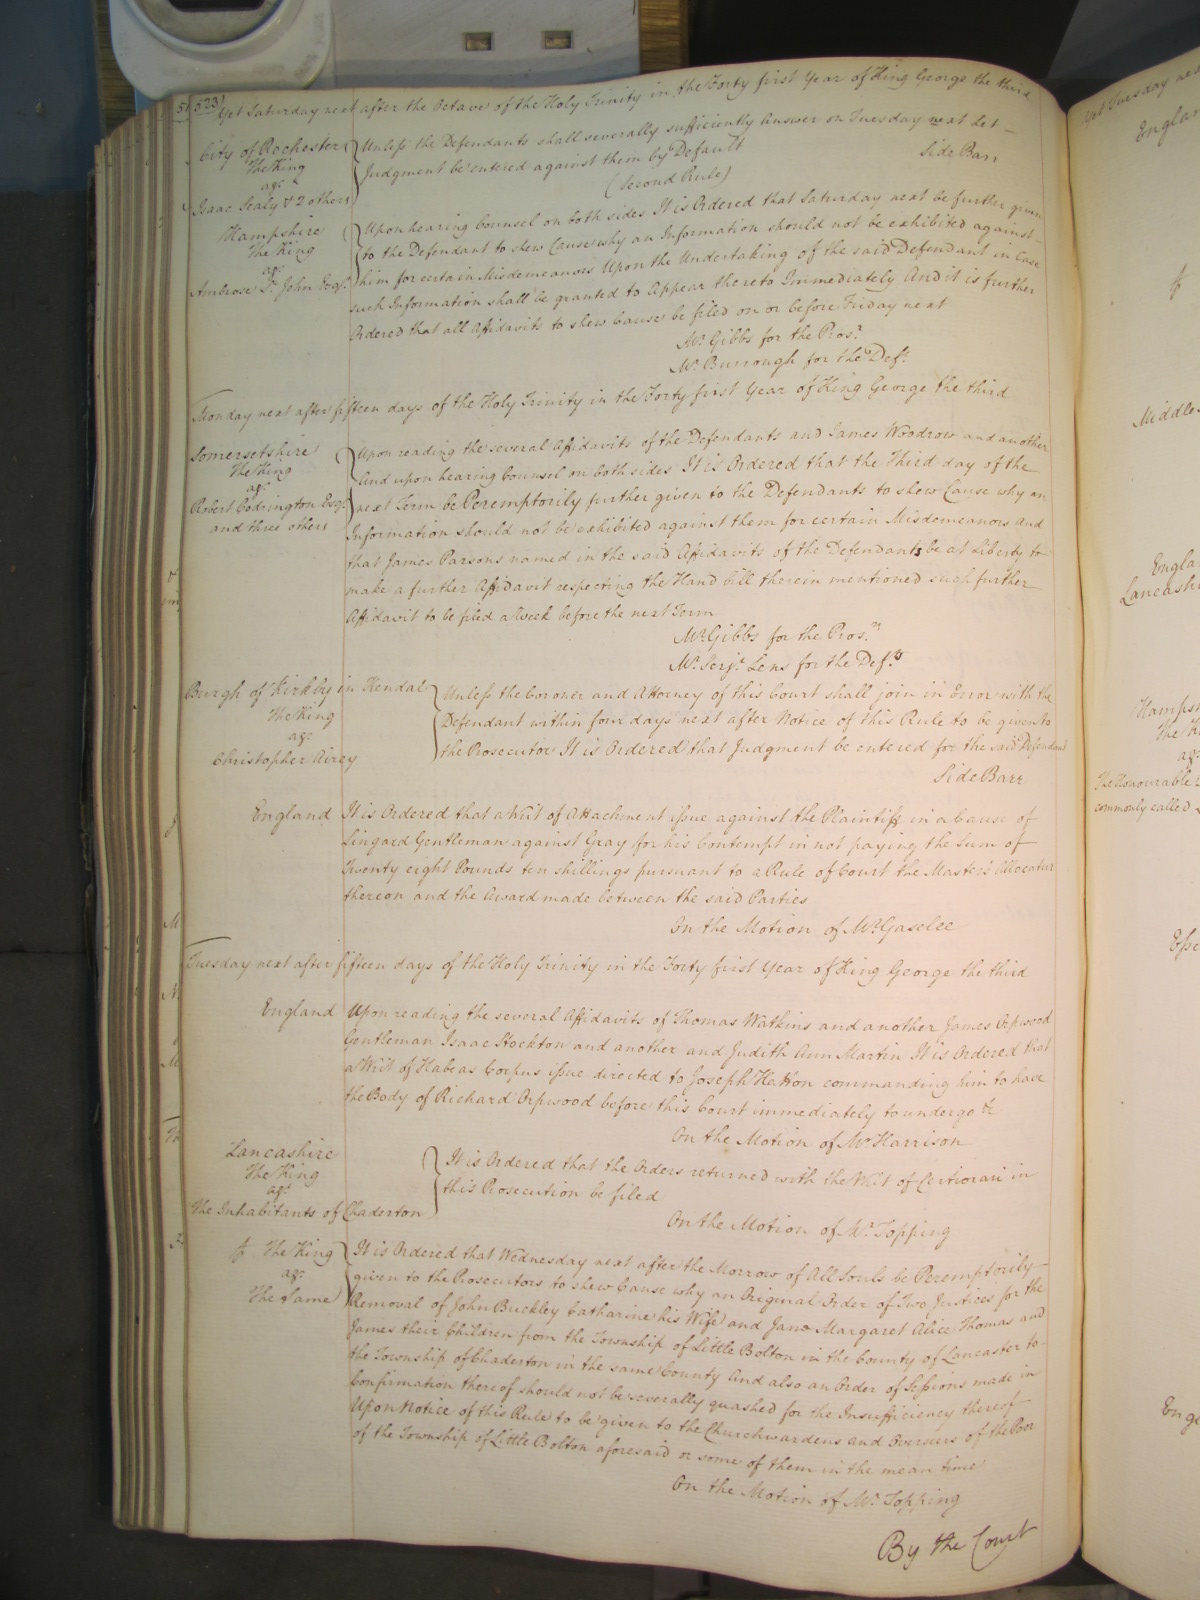 523
Yet Saturday next after the Octave of the Holy Trinity in the Forty first Year of King George the third
City of Rochester
The King
agt
Isaac Sealy & 2 others
Unless the Defendants shall severally sufficiently Answer on Tuesday next Let
Judgment be entered against them by Default
Side Barr
(Second Rule)
Hampshire
The King
agt
Ambrose St. John Esqr.
Upon hearing Counsel on both sides It is Ordered that Saturday next be further given
to the Defendant to shew Cause why an Information should not be exhibited against
him for certain Misdemeanors Upon the Undertaking of the said Defendant in Case
such Information shall be granted to Appear thereto Immediately And it is further
Ordered that all Affidavits to shew Cause be filed on or before Friday next
Mr. Gibbs for the Prosr.
Mr. Burrough for the Deft.
Monday next after fifteen days of the Holy Trinity in the Forty first Year of King George the third
Somersetshire
The King
agt
Robert Codrington Esqr.
and three others
Upon reading the several Affidavits of the Defendants and James Woodrow and another
And upon hearing Counsel on both sides It is Ordered that the Third day of the
next Term be Peremptorily further given to the Defendants to shew Cause why an
Information should not be exhibited against them for certain Misdemeanors And
that James Parsons named in the said Affidavits of the Defendants be at Liberty to
make a further Affidavit respecting the Hand bill therein mentioned such further
Affidavit to be filed a Week before the next Term
Mr. Gibbs for the Prosrs.
Mr. Serjt. Lens for the Defts.
Burgh of Kirkby in Kendal
The King
agt
Christopher Airey
Unless the Coroner and Attorney of this Court shall join in Error with the
Defendant within four days next after Notice of this Rule to be given to
the Prosecutor It is Ordered that Judgment be entered for the said Defendant
Side Barr
England
It is Ordered that a Writ of Attachment issue against the Plaintiff in a Cause of
Lingard Gentleman against Gray for his Contempt in not paying the Sum of
Twenty eight Pounds ten shillings pursuant to a Rule of Court the Master's Allocatur
thereon and the Award made between the said Parties
On the Motion of Mr. Gaselee
Tuesday next after fifteen days of the Holy Trinity in the Forty first Year of King George the third
England
Upon reading the several Affidavits of Thomas Watkins and another James Orpwood
Gentleman Isaac Stockton and another and Judith Ann Martin It is Ordered that
a Writ of Habeas Corpus issue directed to Joseph Hatton commanding him to have
the Body of Richard Orpwood before this Court immediately to undergo &c
On the Motion of Mr. Harrison
Lancashire
The King
agt
The Inhabitants of Chaderton
It is Ordered that the Orders returned with the Writ of Certiorari in
this Prosecution be filed
On the Motion of Mr. Topping
The King
agt
The Same
It is Ordered that Wednesday next after the Morrow of All Souls be Peremptorily
given to the Prosecutors to shew Cause why an Original Order of Two Justices for the
Removal of John Buckley Catharine his Wife and Jane Margaret Alice Thomas and
James their Children from the Township of Little Bolton in the County of Lancaster to
the Township of Chaderton in the same County And also an Order of Sessions made in
Confirmation thereof should not be severally quashed for the Insufficiency thereof
Upon Notice of this Rule to be given to the Churchwardens and Overseers of the Poor
of the Township of Little Bolton aforesaid or some of them in the mean time
On the Motion of Mr. Topping
By the Court
Yet Tuesday
Middle
Lancashi
Hampsh
The K
agt
The Honourable
commonly called